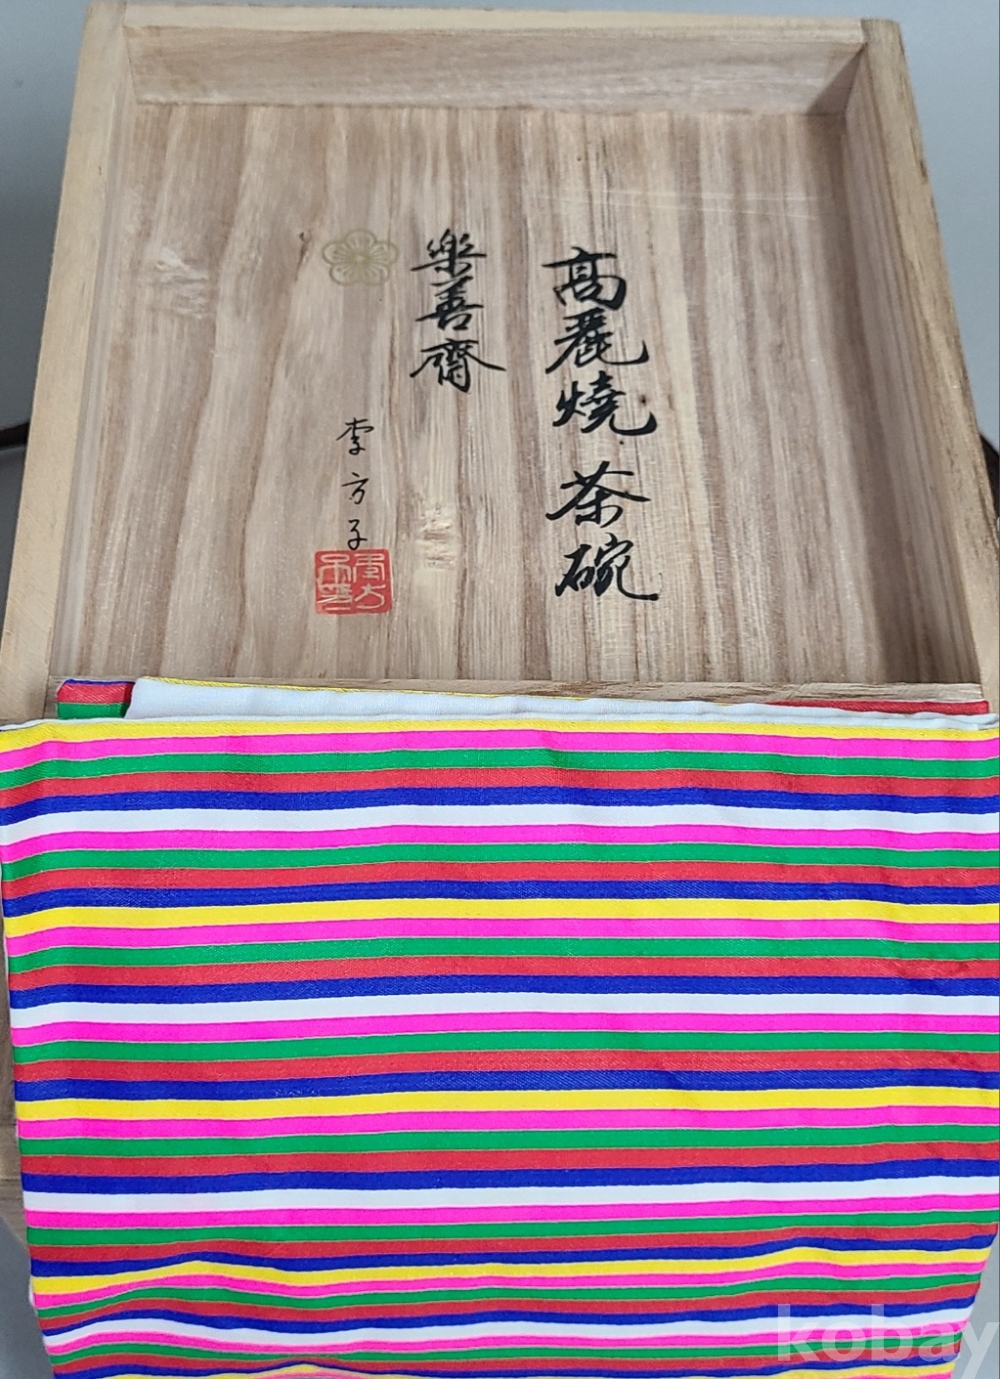 高麗燒 茶碗
樂善齋
李方子
kobay